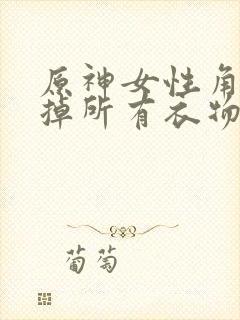 原神女性角
掉所有衣物
葡萄